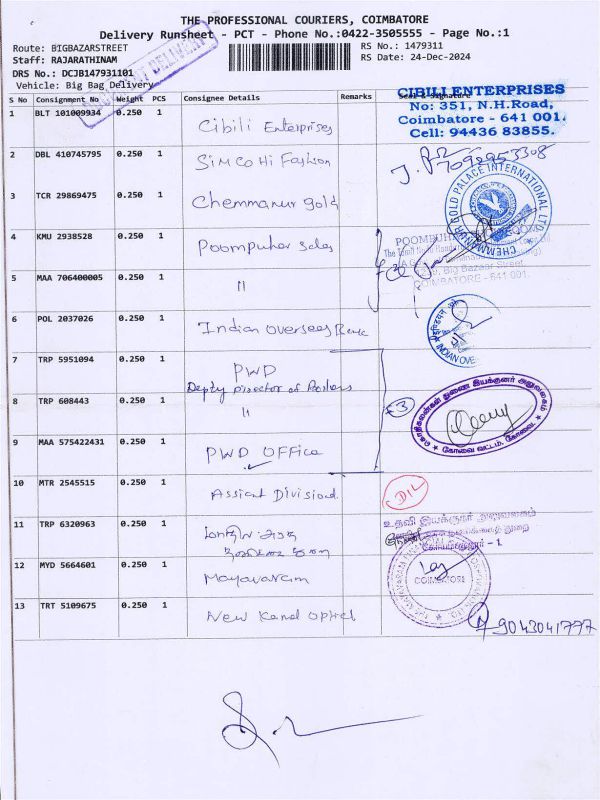 THE PROFESSIONAL COURIERS, COIMBATORE
Delivery Runsheet - PCT - Phone No.:0422-3505555 - Page No.:1
Route: BIGBAZARSTREET
RS No.: 1479311
Staff: RAJARATHINAM
RS Date: 24-Dec-2024
DRS No.: DCJB147931101
Vehicle: Big Bag Delivery
S No Consignment No Weight PCS Consignee Details Remarks
CIBILI ENTERPRISES
No: 351, N.H.Road,
Coimbatore - 641 001.
Cell: 94436 83855.
1 BLT 101009934 0.250 1 Cibili Enterprises
2 DBL 410745795 0.250 1 Simco Hi Fashion
7092953308
3 TCR 29869475 0.250 1 Chemmanur gold
CHEMMANUR GOLD PALACE INTERNATIONAL LTD.
4 KMU 2938528 0.250 1 Poompuhar Sales
Big Bazaar Street
COIMBATORE - 641 001.
5 MAA 706400005 0.250 1 "
6 POL 2037026 0.250 1 Indian Overseas Bank
INDIAN OVE
7 TRP 5951094 0.250 1 PWD
Depty Director of Boilers
8 TRP 608443 0.250 1 "
3
கோவை வட்டம், கோவை.
9 MAA 575422431 0.250 1 PWD OFFICE
10 MTR 2545515 0.250 1 Assient Divisional
DIL
11 TRP 6320963 0.250 1
உதவி இயக்குனர் அலுவலகம்
12 MYD 5664601 0.250 1 Mayavaram
COIMBATORE
13 TRT 5109675 0.250 1 New Kanal Optical
9043041777